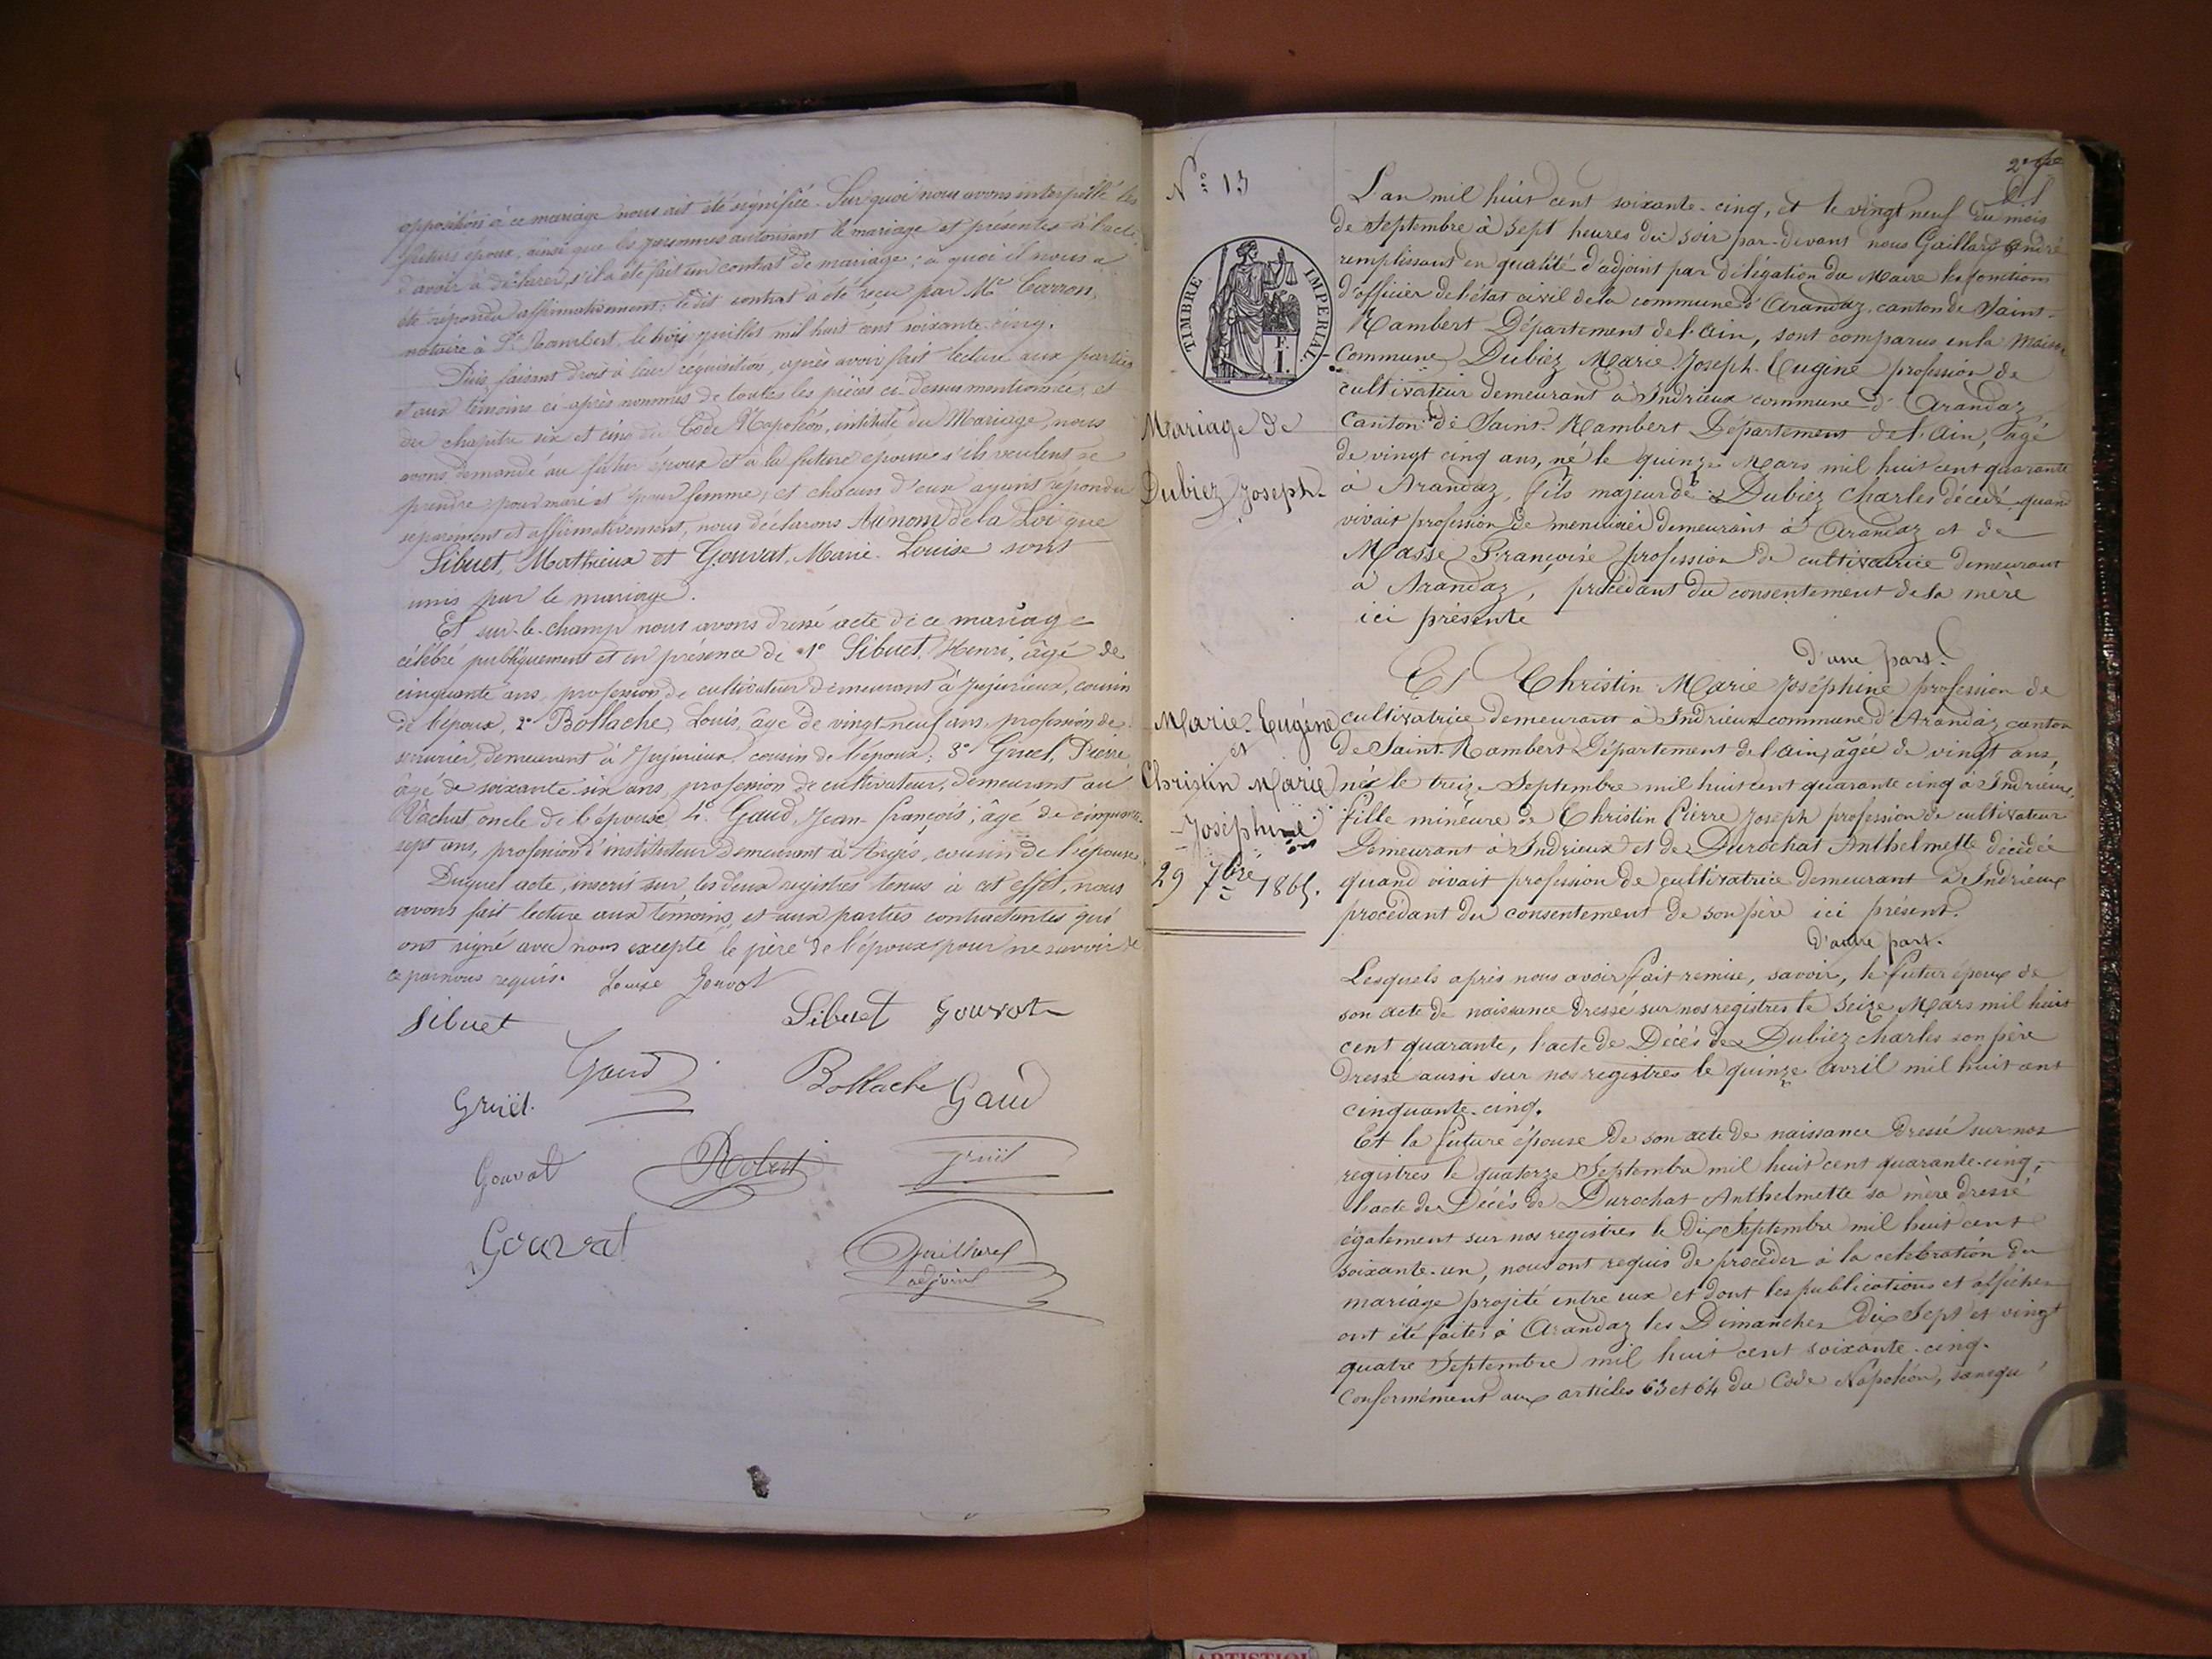 opposition à ce mariage nous ait été signifiée. Sur quoi nous avons interpellé les
futurs époux, ainsi que les personnes autorisant le mariage et présentes à l'acte
d'avoir à déclarer, s'il a été fait un contrat de mariage; à quoi il nous a
été répondu affirmativement: le dit contrat a été reçu par Me Carron,
notaire à St Rambert, le trois juillet mil huit cent soixante-cinq.
Puis, faisant droit à leur réquisition, après avoir fait lecture aux parties
et aux témoins ci-après nommés de toutes les pièces ci-dessus mentionnées, et
du chapitre six et cinq du Code Napoléon, intitulé du Mariage, nous
avons demandé au futur époux et à la future épouse s'ils veulent se
prendre pour mari et pour femme; et chacun d'eux ayant répondu
séparément et affirmativement, nous déclarons Au nom de la Loi que
Sibuet, Mathieux et Gouvat, Marie-Louise sont
unis par le mariage.
Et sur-le-champ nous avons dressé acte de ce mariage
célébré publiquement et en présence de 1° Sibuet, Henri, âgé de
cinquante ans, profession de cultivateur demeurant à Jujurieux, cousin
de l'époux, 2° Bollache, Louis, âgé de vingt-neuf ans, profession de
serrurier, demeurant à Jujurieux, cousin de l'époux; 3° Gruel, Pierre,
âgé de soixante-six ans, profession de cultivateur, demeurant au
Vachat, oncle de l'épouse, 4° Gaud, Jean-françois, âgé de cinquante-
sept ans, profession d'instituteur demeurant à Argis, cousin de l'épouse.
Duquel acte, inscrit sur les deux registres tenus à cet effet, nous
avons fait lecture aux témoins et aux parties contractantes qui
ont signé avec nous excepté le père de l'époux pour ne savoir de
ce par nous requis. Louise Gouvat
Sibuet Sibuet Gouvat
Gaud Bollache Gaud
Gruel.
Gouvat Robert Gruel
Gouvat
adjoint
N° 13
TIMBRE IMPERIAL.
E. I.
Mariage de
Dubiez Joseph-
Marie-Eugéne
et
Christin Marie
Joséphine
29 7bre 1865.
L'an mil huit cent soixante-cinq, et le vingt neuf du mois
de Septembre à sept heures du soir par-devant nous Gaillard André
remplissant en qualité d'adjoint par délégation du Maire les fonctions
d'officier de l'état civil de la commune d'Arandaz, canton de Saint-
Rambert Département de l'Ain, sont comparus en la Maison
Commune, Dubiez Marie Joseph-Eugène profession de
cultivateur demeurant à Indrieux commune d'Arandaz
Canton de Saint-Rambert Département de l'Ain, âgé
de vingt cinq ans, né le quinze Mars mil huit cent quarante
à Arandaz, fils majeur de Dubiez Charles décédé, quand
vivait profession de menuisier demeurant à Arandaz et de
Masse Françoise profession de cultivatrice demeurant
à Arandaz, procédant du consentement de sa mère
ici présente
d'une part.
Et Christin Marie Joséphine profession de
cultivatrice demeurant à Indrieux commune d'Arandaz canton
de Saint-Rambert Département de l'Ain, âgée de vingt ans,
née le treize Septembre mil huit cent quarante cinq à Indrieux,
fille mineure de Christin Pierre Joseph profession de cultivateur
Demeurant à Indrieux et de Durochat Anthelmette décédée
quand vivait profession de cultivatrice demeurant à Indrieux
procédant du consentement de son père ici présent.
d'autre part.
Lesquels après nous avoir fait remise, savoir, le futur époux de
son acte de naissance dressé sur nos registres le Seize Mars mil huit
cent quarante, l'acte de Décès de Dubiez Charles son père
dressé aussi sur nos registres le quinze Avril mil huit cent
cinquante-cinq.
Et la future épouse de son acte de naissance dressé sur nos
registres le quatorze Septembre mil huit cent quarante-cinq,
l'acte de Décès de Durochat Anthelmette sa mère dressé
également sur nos registres le Dix Septembre mil huit cent
soixante-un, nous ont requis de procéder à la celebration du
mariage projeté entre eux et dont les publications et affiches
ont été faites à Arandaz les Dimanches Dix Sept et vingt
quatre Septembre mil huit cent soixante-cinq.
Conformément aux articles 63 et 64 du Code Napoléon, sanqu'